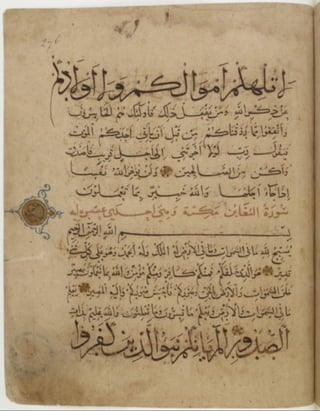 276
لا تلهكم اموالكم ولا اولادكم
عن ذكر الله ومن يفعل ذلك فاولئك هم الخاسرون
وانفقوا مما رزقناكم من قبل ان ياتي احدكم الموت
فيقول رب لولا اخرتني الى اجل قريب فاصدق
واكن من الصالحين ولن يؤخر الله نفسا
اذا جاء اجلها والله خبير بما تعملون
سورة التغابن مكية وهي
بسم الله الرحمن الرحيم
يسبح لله ما في السموات وما في الارض له الملك وله الحمد وهو على كل شيء
قدير هو الذي خلقكم فمنكم كافر ومنكم مؤمن والله بما تعملون بصير
خلق السموات والارض بالحق وصوركم فاحسن صوركم واليه المصير يعلم
ما في السموات والارض ويعلم ما تسرون وما تعلنون والله عليم بذات
الصدور الم ياتكم نبوا الذين كفروا